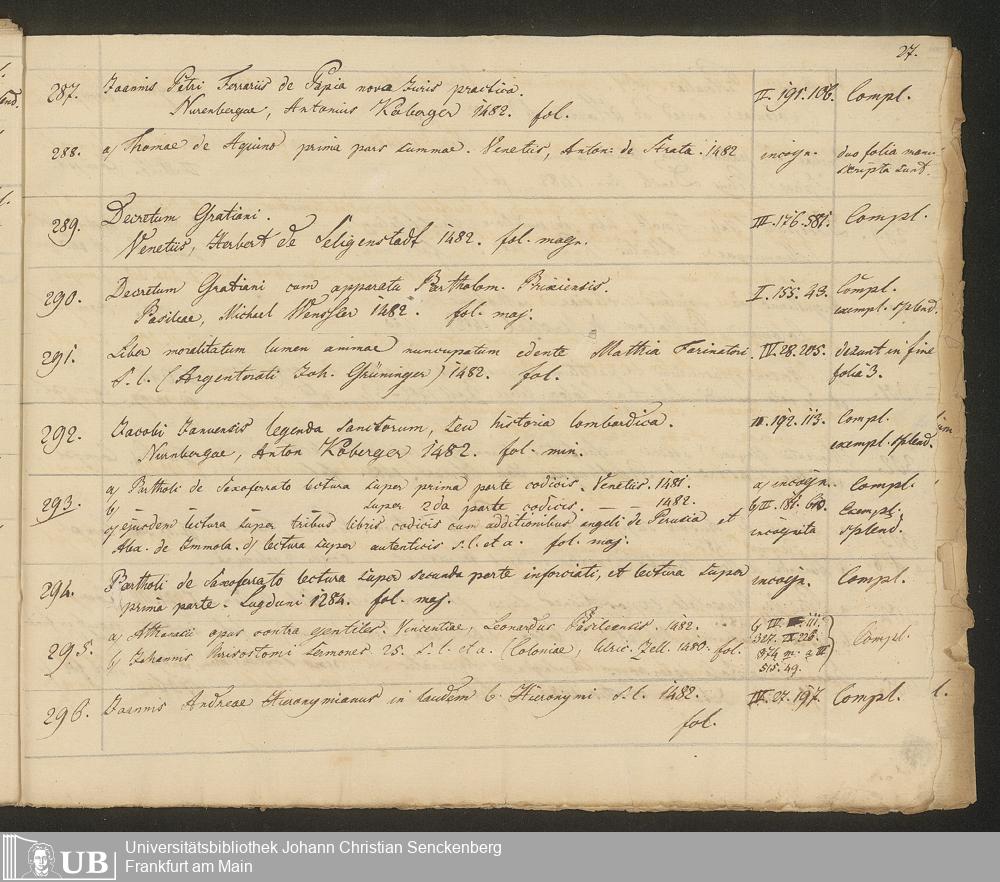 27.
287. Joannis Petri Ferrariis de Papia nova Juris practica. II. 191. 106. Compl.
Nurenbergae, Antonius Koberger 1482. fol.
288. a) Thomae de Aquino prima pars summae. Venetiis, Anton: de Strata. 1482 incogn. duo folia manu-
scripta sunt.
289. Decretum Gratiani. III. 176. 581. Compl.
Venetiis, Herbort de Seligenstadt 1482. fol. magn.
290. Decretum Gratiani cum apparatu Bartholom. Brixiensis. I. 155. 43. Compl.
Basileae, Michael Wenssler 1482. fol. maj. exempl. splend.
291. Liber moralitatum lumen animae nuncupatum edente Mathia Farinatori. IV. 28. 205. desunt in fine
S. l. (Argentorati Joh. Grüninger) 1482. fol. folia 3.
292. Jacobi Januensis legenda sanctorum, seu historia lombardica. II. 192. 113. Compl.
Nurnbergae, Anton Koberger 1482. fol. min. exempl. splend.
293. a) Bartholi de Saxoferrato lectura super prima parte codicis. Venetiis. 1481. a) incogn. Compl.
b) super 2da parte codicis. — 1482. b) II. 181. Exempl.
c) ejusdem lectura super tribus libris codicis cum additionibus angeli de Perusia et
Alex. de Immola. d) lectura super autenticis s. l. et a. fol. maj. incognita splend.
294. Bartholi de Saxoferrato lectura super secunda parte inforciati, et lectura super incogn. Compl.
prima parte. Lugduni 1284. fol. maj.
295. a) Athanacii opus contra gentiles. Vincentiae, Leonardus Basileensis. 1482. b) IV. 111.
327. IX 226. Compl.
b) Johannis Chrisostomi sermones 25. s. l. et a. (Coloniae, Ulric. Zell. 1480. fol. 374 m. a III
515. 49.
296. Joannis Andreae Hieronymianus in laudem b. Hieronymi S. l. 1482. IV. 27. 197. Compl.
fol.
UB Universitätsbibliothek Johann Christian Senckenberg
Frankfurt am Main